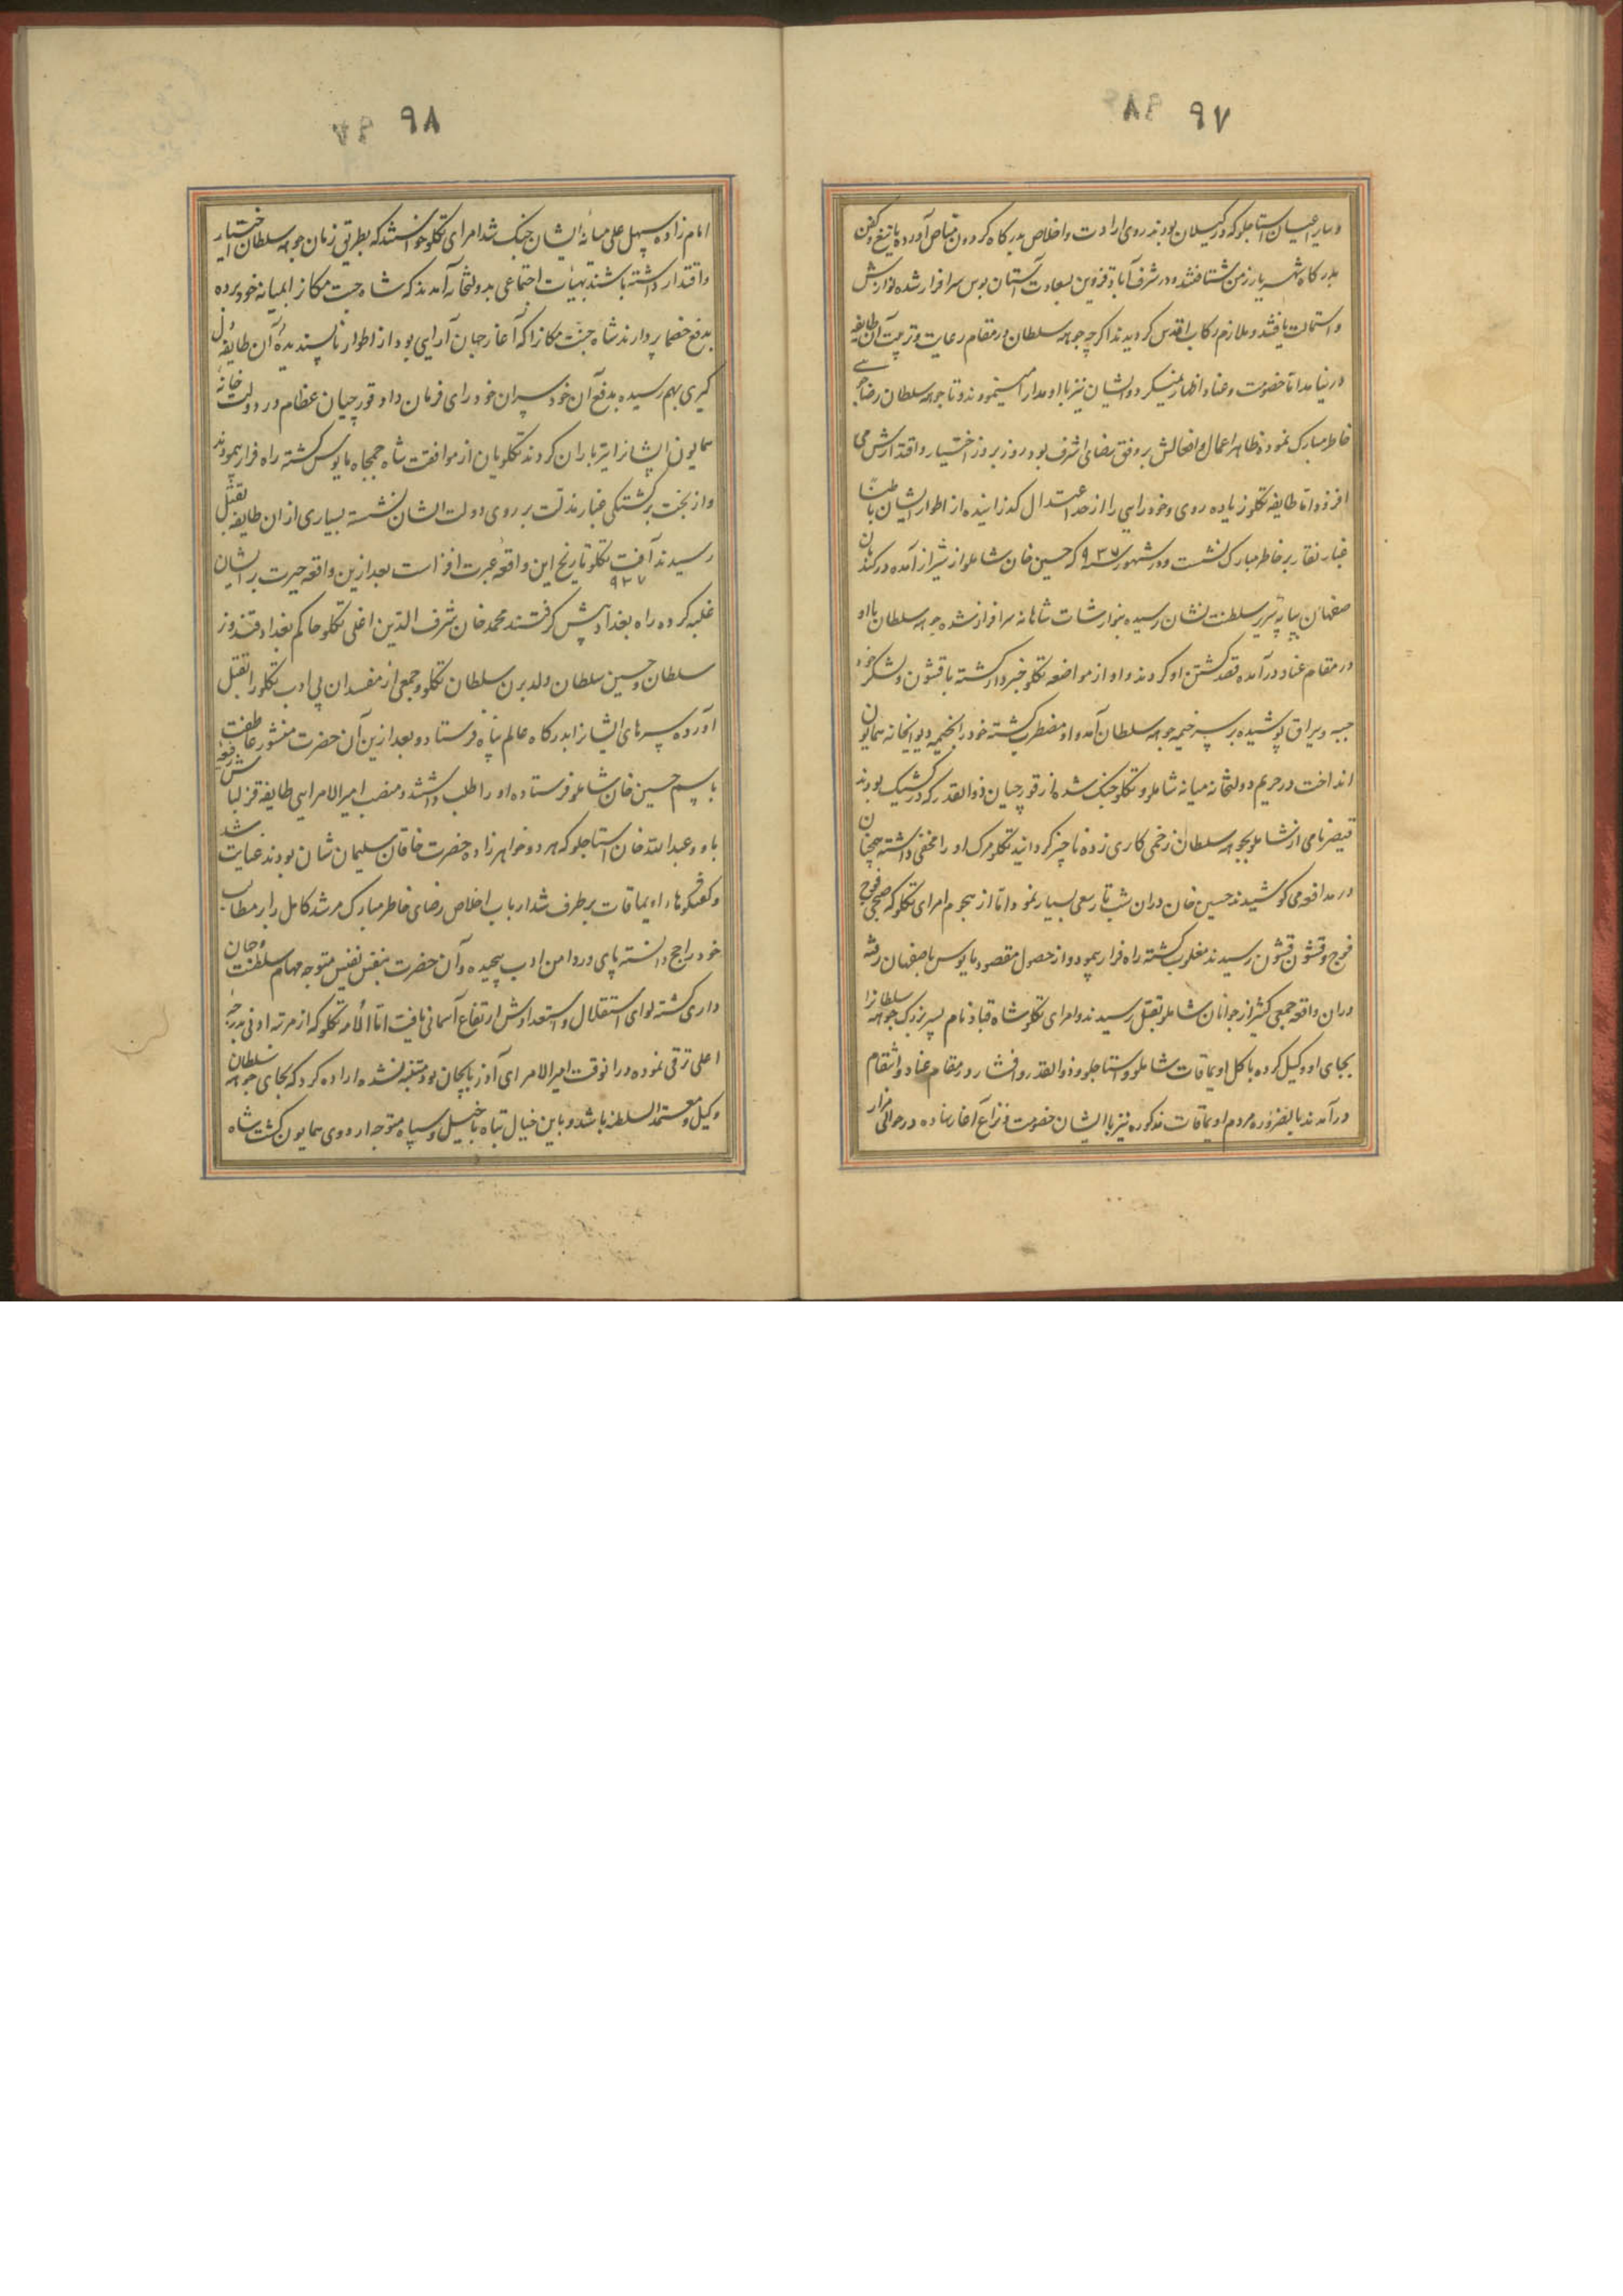 ۹۷
وسایر اعیان استاجلو که در کیلان بودند روی ارادت واخلاص بدرکاه کردون مناص آورده با تیغ وکفن
بدرکاه شهریار زمن شتافتند ودر شرف آباد قزوین بسعادت آستان بوس سرافراز شده نوازش
واستمالت یافتند وملازم رکاب اقدس کردیدند اکرچه جوهه سلطان در مقام رعایت وتربیت آن طایفه
در نیامد اما خصومت وعناد اظهار نمیکرد وایشان نیز با او مدارا مینمودند وتا جوهه سلطان رضاجویی
خاطر مبارک نموده ظاهر اعمال وافعالش بر وفق رضای اشرف بود روز بروز اختیار واقتدارش می
افزود واما طایفه تکلو زیاده روی وخودرایی را از حد اعتدال کذرانیده از اطوار ایشان باطناً
غبار نقار بر خاطر مبارک نشست ودر شهور سنه ۹۳۷ که حسین خان شاملو از شیراز آمده در کندمان
صفهان بپایه سریر سلطنت نشان رسیده بنوازشات شاهانه سرافراز شده جوهه سلطان با او
در مقام عناد در آمده قصد کشتن او کردند واو از مواضعه تکلو خبردار کشته با قشون ولشکر خود
جبه ویراق پوشیده بر سر خیمه جوهه سلطان آمد واو مضطرب کشته خود را بخیمه دیوانخانه همایون
انداخت در حریم دولتخانه میانه شاملو وتکلو جنک شده از قورچیان ذوالقدر که در کشیک بودند
قیصر نامی از شاملو بجوهه سلطان زخمی کاری زده ناچیز کردانید تکلو مرک او را مخفی داشته همچنان
در مدافعه می کوشیدند حسین خان دران شب تار سعی بسیار نمود اما از هجوم امرای تکلو که صبحی فوج
فوج وقشون قشون رسیدند مغلوب کشته راه فرار پیمود واز حصول مقصود مایوس باصفهان رفته
دران واقعه جمعی کثیر از جوانان شاملو بقتل رسیدند وامرای تکلو شاه قباد نام پسر بزرک جوهه سلطانرا
بجای او وکیل کرده با کل اویماقات شاملو واستاجلو وذوالقدر وافشار در مقام عناد وانتقام
در آمدند بالضروره مردم اویماقات مذکوره نیز با ایشان خصومت ونزاع آغاز نهاده در حوالی مزار
۹۸
امام زاده سهل علی میانه ایشان جنک شد امرای تکلو خواستند که بطریق زمان جوهه سلطان اختیار
واقتدار داشته باشند بهیأت اجتماعی بدولتخانه آمدند که شاه جنت مکانرا بمیانه خود برده
بدفع خصما پردازند شاه جنت مکانرا که آغاز جهان آرایی بود از اطوار ناپسندیده آن طایفه دل
کیری بهم رسیده بدفع آن خودسران خودرای فرمان داد وقورچیان عظام در دولت خانه
همایون ایشانرا تیرباران کردند تکلویان از موافقت شاه جمجاه مایوس کشته راه فرار پیمودند
واز بخت برکشتکی غبار مذلت بر روی دولت ایشان نشسته بسیاری ازان طایفه بقتل
رسیدند آفت تکلو تاریخ این واقعه عبرت افزاست بعد ازین واقعه حیرت بر ایشان
۹۳۷
غلبه کرده راه بغداد پیش کرفتند محمد خان شرف الدین اغلی تکلو حاکم بغداد قندوز
سلطان وحسین سلطان ولد برن سلطان تکلو وجمعی از مفسدان بی ادب تکلو را بقتل
آورده سرهای ایشانرا بدرکاه عالم پناه فرستاد وبعد ازین آن حضرت منشور عاطفت
باسم حسین خان شاملو فرستاده او را طلب داشتند ومنصب امیر الامرایی طایفه قزلباش
باو وعبدالله خان استاجلو که هر دو خواهرزاده حضرت خاقان سلیمان شان بودند عنایت شد
وکفتکوهاء اویماقات برطرف شد ارباب اخلاص رضای خاطر مبارک مرشد کامل را بر مطالب
خود راجح دانسته پای در دامن ادب پیچیده وآن حضرت بنفس نفیس متوجه مهام سلطنت وجهان
داری کشته لوای استقلال واستعدادش ارتفاع آسمانی یافت اما الامه تکلو که از مرتبه ادنی بدرجه
اعلی ترقی نموده درانوقت امیر الامرای آذربایجان بود متنبه نشده اراده کرد که بجای جوهه سلطان
وکیل ومعتمد السلطنه باشد وباین خیال تباه با خیل وسپاه متوجه اردوی همایون کشت شاه